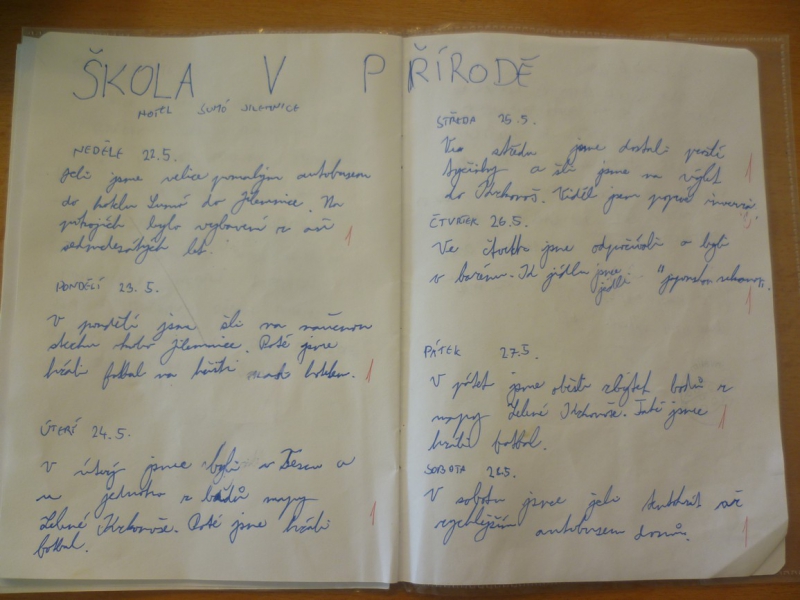 ŠKOLA V PŘÍRODĚ
HOTEL SUMÓ JILEMNICE
NEDĚLE 22.5.
Jeli jsme velice pomalým autobusem
do hotelu Sumó do Jilemnice. Na
pokojích bylo vybavení z
sedmdesátých let.
1
PONDĚLÍ 23.5.
V pondělí jsme šli na naučnou
stezku kolo Jilemnice. Poté jsme
hráli fotbal na hřišti nad hotelem.
1
ÚTERÝ 24.5.
V úterý jsme byli v a
u jednoho z bodů mapy
Zelené Krkonoše. Poté jsme hráli
fotbal.
1
STŘEDA 25.5.
Ve středu jsme dostali
tyčinky a šli jsme na výlet
do Krkonoš. Viděli jsme poprvé inverzi.
1
ČTVRTEK 26.5.
Ve čtvrtek jsme odpočívali a byli
v bazénu. K jídlu jsme
jedli
1
PÁTEK 27.5.
V pátek jsme oběhli zbytek bodů z
mapy Zelené Krkonoše. Také jsme
hráli fotbal.
1
SOBOTA 28.5.
V sobotu jsme jeli tentokrát
rychlejším autobusem domů.
1